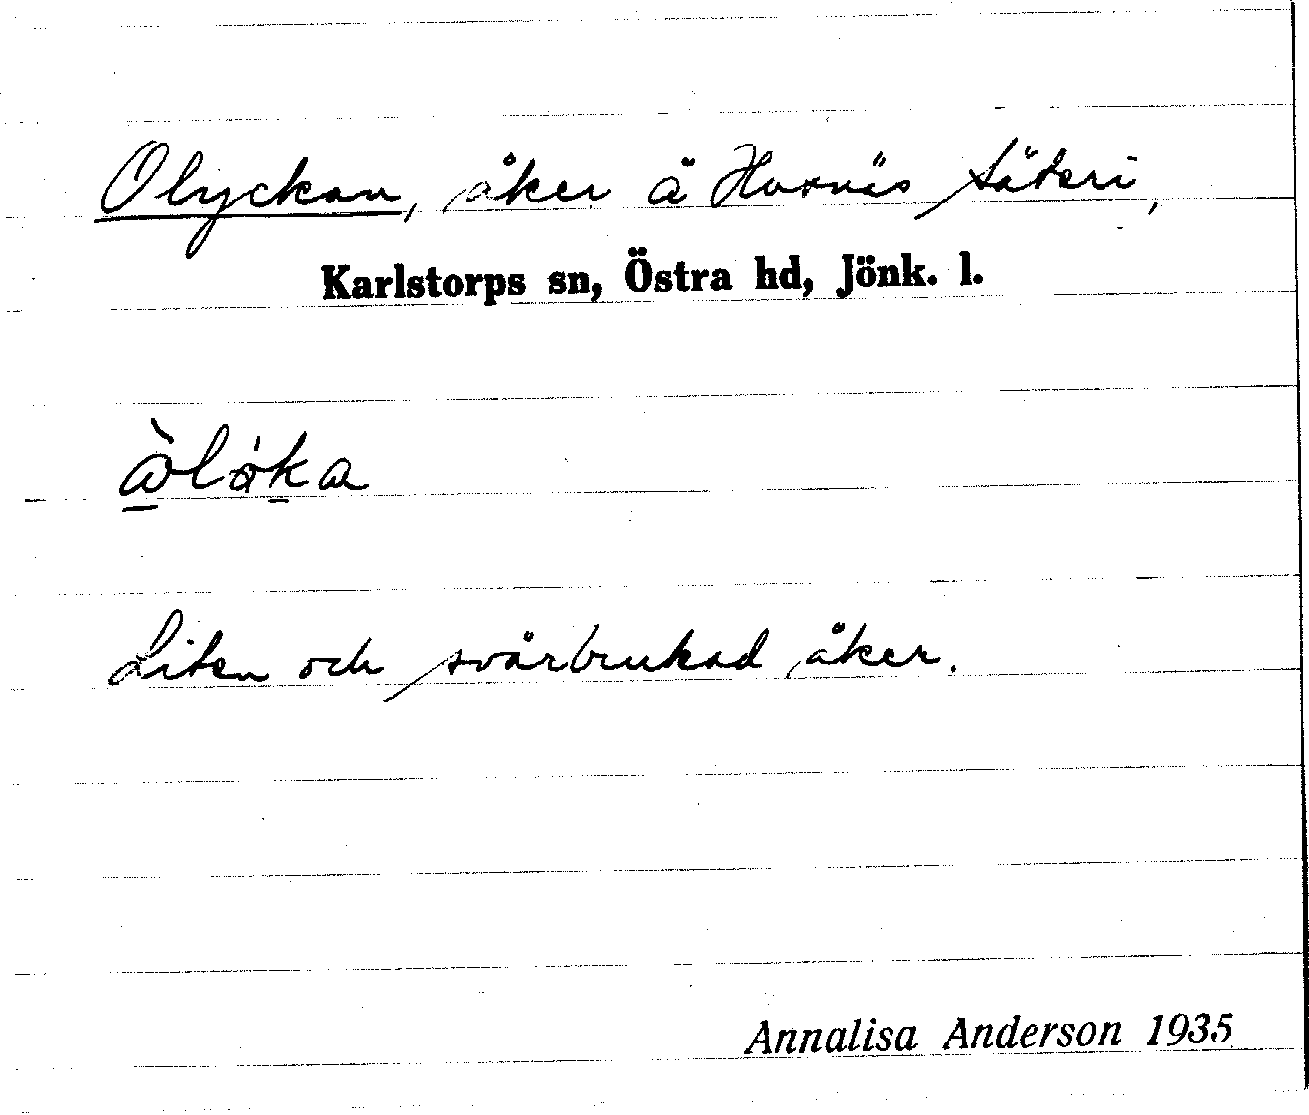 Olyckan, åker å Hornäs Säteri,
Karlstorps sn, Östra hd, Jönk. l.
Liten och svårbrukad åker.
Annalisa Anderson 1935